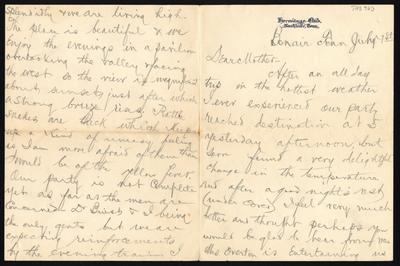 Hermitage Club,
Nashville, Tenn.
Bonair Tenn July 7th
Dear Mother-
After an all day
trip on the hottest weather
I ever experienced our party
reached destination at 5
yesterday afternoon, but
soon found a very delightful
change in the temperature
and after a good night's rest
(under cover) I feel very much
better and thought perhaps you
would be glad to hear from me
Mrs Overton is entertaining us
splendidly & we are living high.
The place is beautiful & we
enjoy the evenings in a pavilion
overlooking the valley & facing
the west so the view is magnificent
about sunset, just after which
a strong breeze rises. Rattle
snakes are thick which keeps
up a kind of uneasy feeling
as I am more afraid of them than
I would be of the yellow fever.
Our party is not complete
yet as far as the men are
concerned Dr & I being
the only gents but we are
expecting reinforcements
by the evening train. I